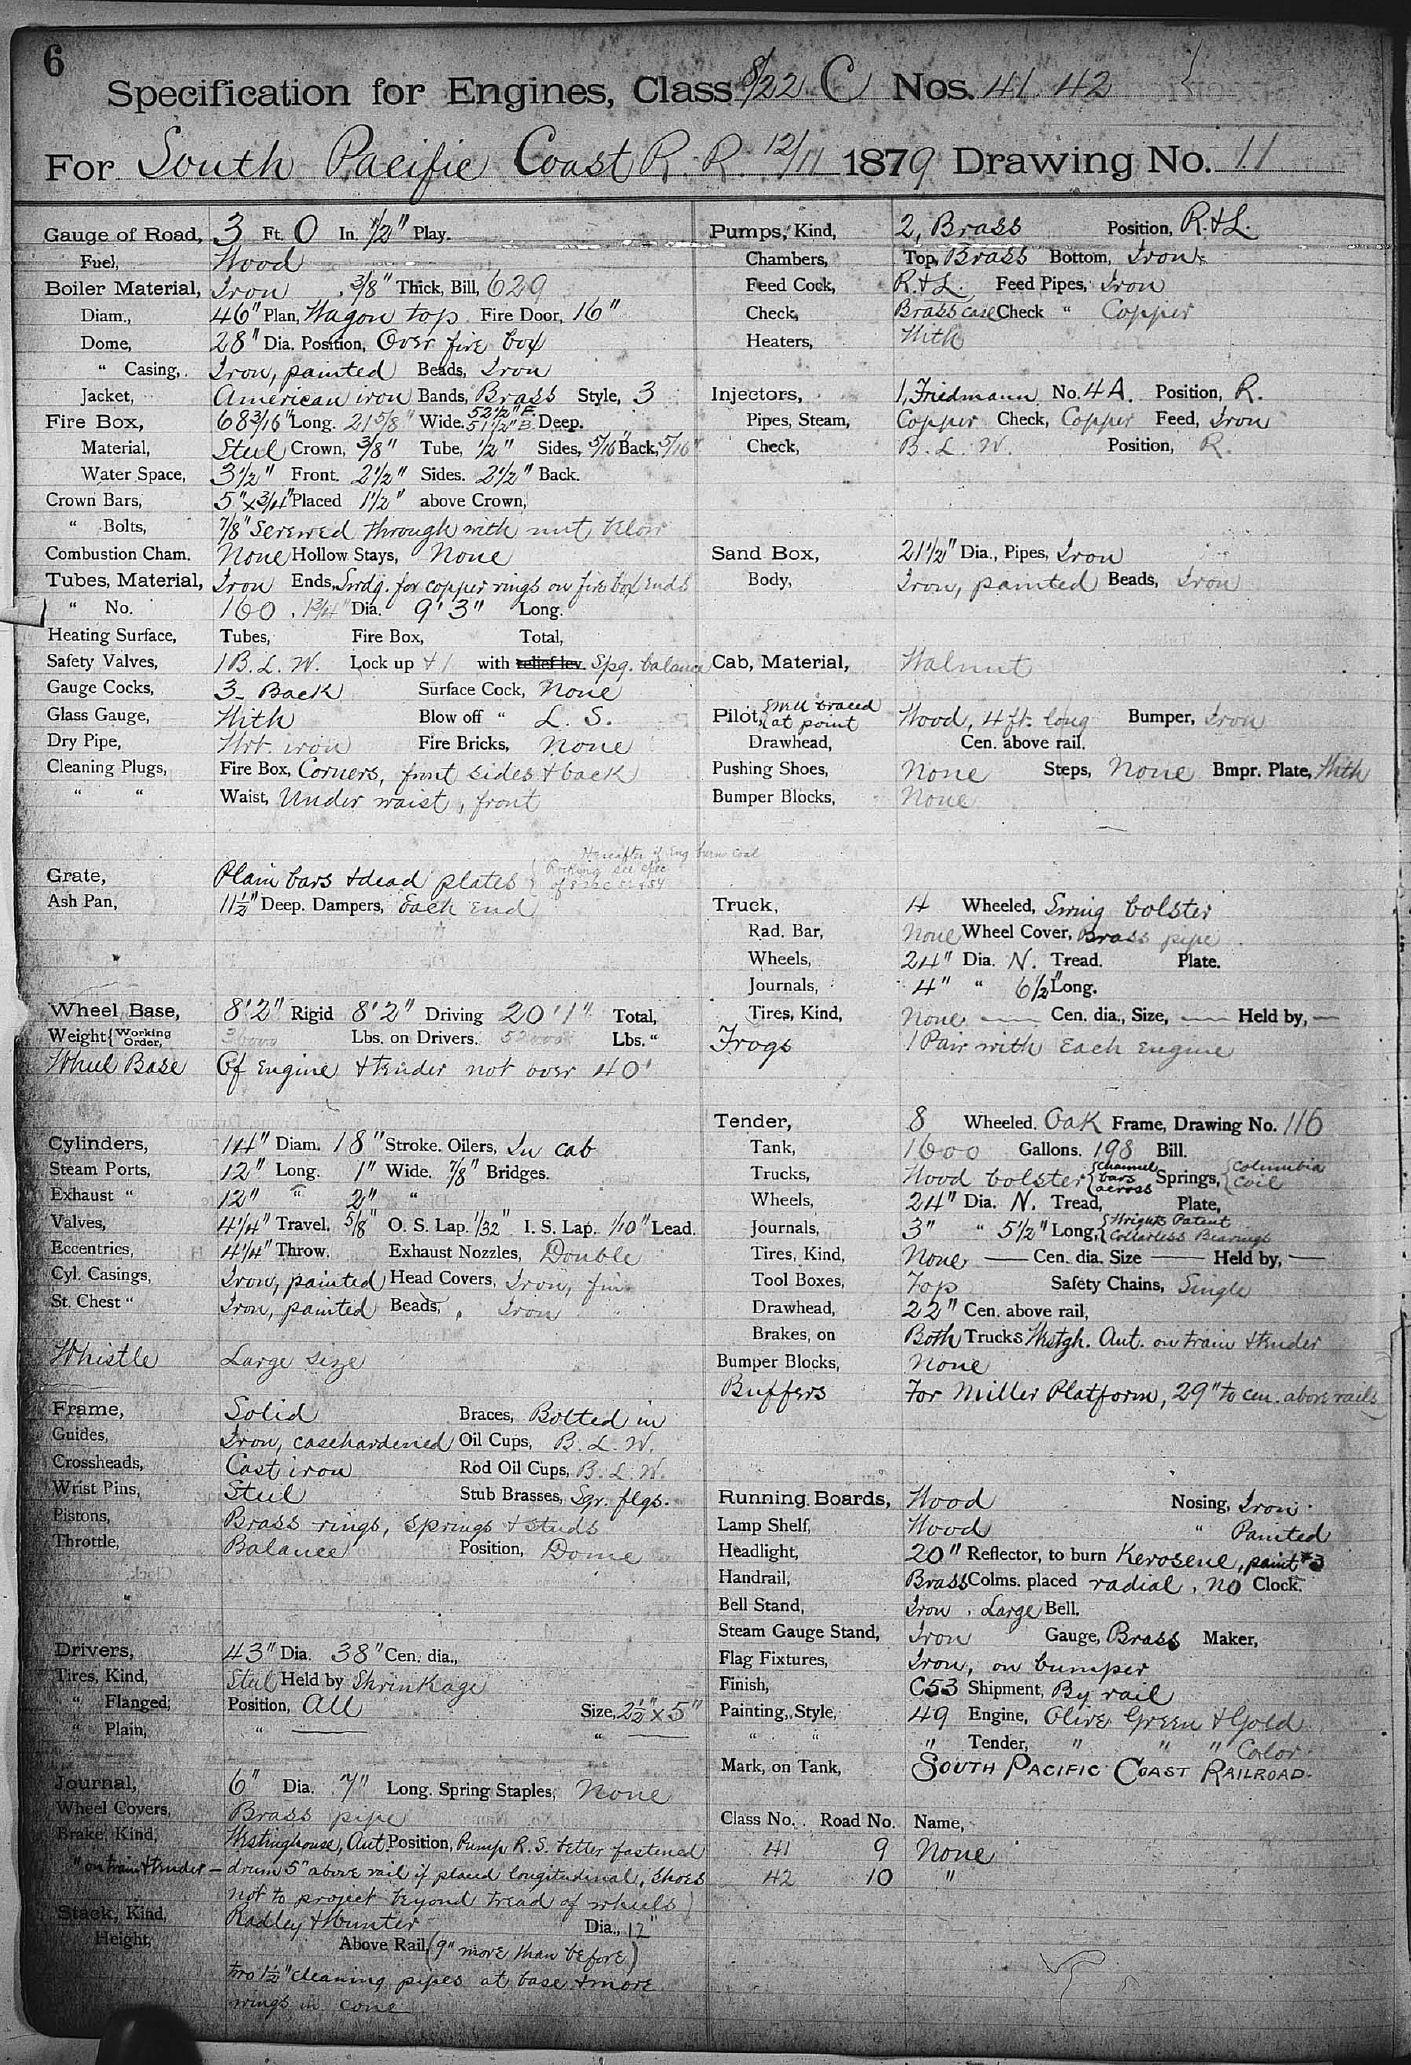 6
Specification for Engines, Class 8/22 C Nos. 41. 42
For South Pacific Coast R. R. 12/11 1879 Drawing No. 11
Gauge of Road, 3 Ft. 0 In. 1/2" Play.
Fuel, Wood
Boiler Material, Iron 3/8" Thick, Bill, 629
Diam., 46" Plan, Wagon top Fire Door, 16"
Dome, 28" Dia. Position, Over fire box
" Casing, Iron, painted Beads, Iron
Jacket, American iron Bands, Brass Style, 3
Fire Box, 68 3/16" Long. 21 5/8" Wide. 52 1/2" F. 51 1/2" B. Deep.
Material, Steel Crown, 3/8" Tube, 1/2" Sides, 5/16" Back, 5/16"
Water Space, 3 1/2" Front. 2 1/2" Sides. 2 1/2" Back.
Crown Bars, 5" x 3/4" Placed 1 1/2" above Crown,
" Bolts, 7/8" Screwed through with nut below
Combustion Cham. None Hollow Stays, None
Tubes, Material, Iron Ends, Swdg. for copper rings on fire box ends
" No. 160. 1 3/4" Dia. 9' 3" Long.
Heating Surface, Tubes, Fire Box, Total,
Safety Valves, 1 B. L. W. Lock up + 1 with relief lev. Spg. balance
Gauge Cocks, 3 - Back Surface Cock, None
Glass Gauge, With Blow off " L. S.
Dry Pipe, Wrt. iron Fire Bricks, None
Cleaning Plugs, Fire Box, Corners, front sides + back
" " Waist, Under waist, front
Hereafter if Eng burns coal
Grate, Plain bars + dead plates } Rocking see spec
of 8 22 C 52 + 54
Ash Pan, 11 1/2" Deep. Dampers, Each End
Wheel Base, 8' 2" Rigid 8' 2" Driving 20' 1" Total,
Weight { Working Order, 36000 Lbs. on Drivers. 52000 Lbs. "
Wheel Base Of Engine + tender not over 40'
Cylinders, 14" Diam. 18" Stroke. Oilers, In cab
Steam Ports, 12" Long. 1" Wide. 7/8" Bridges.
Exhaust " 12" " 2" "
Valves, 4 1/4" Travel. 5/8" O. S. Lap. 1/32" I. S. Lap. 1/10" Lead.
Eccentrics, 4 1/4" Throw. Exhaust Nozzles, Double
Cyl. Casings, Iron, painted Head Covers, Iron,
St. Chest " Iron, painted Beads, Iron
Whistle Large size
Frame, Solid Braces, Bolted in
Guides, Iron, casehardened Oil Cups, B. L. W.
Crossheads, Cast iron Rod Oil Cups, B. L. W.
Wrist Pins, Steel Stub Brasses, Sqr. flgs.
Pistons, Brass rings, springs + studs
Throttle, Balance Position, Dome
"
Drivers, 43" Dia. 38" Cen. dia.,
Tires, Kind, Steel Held by Shrinkage
" Flanged, Position, All Size, 2 1/2" x 5"
" Plain, " — " —
Journal, 6" Dia. 7" Long. Spring Staples, None
Wheel Covers, Brass pipe
Brake, Kind, Westinghouse, Aut. Position, Pump R. S. better fastened
" on train + tender — drum 5" above rail if placed longitudinal, shoes
not to project beyond tread of wheels)
Stack, Kind, Radley + Hunter Dia., 12"
Height, Above Rail, (9" more than before)
two 1 1/2" cleaning pipes at base + more
wings in cone
Pumps, Kind, 2, Brass Position, R. + L.
Chambers, Top, Brass Bottom, Iron
Feed Cock, R. + L. Feed Pipes, Iron
Check, Brass case Check " Copper
Heaters, With
Injectors, 1, Friedmann No. 4 A. Position, R.
Pipes, Steam, Copper Check, Copper Feed, Iron
Check, B. L. W. Position, R.
Sand Box, 21 1/2" Dia., Pipes, Iron
Body, Iron, painted Beads, Iron
Cab, Material, Walnut
Pilot, { well braced at point Wood, 4 ft. long Bumper, Iron
Drawhead, Cen. above rail.
Pushing Shoes, None Steps, None Bmpr. Plate, With
Bumper Blocks, None
Truck, 4 Wheeled, Swing bolster
Rad. Bar, None Wheel Cover, Brass pipe
Wheels, 24" Dia. N. Tread. Plate.
Journals, 4" " 6 1/2" Long.
Tires, Kind, None — Cen. dia., Size, — Held by, —
Frogs 1 Pair with Each Engine
Tender, 8 Wheeled. Oak Frame, Drawing No. 116
Tank, 1600 Gallons. 198 Bill.
Trucks, Wood bolster { Channel bars across Springs, { Columbia Coil
Wheels, 24" Dia. N. Tread, Plate,
Journals, 3" " 5 1/2" Long, { Wrights Patent Collarless Bearings
Tires, Kind, None, — Cen. dia. Size — Held by, —
Tool Boxes, Top Safety Chains, Single
Drawhead, 22" Cen. above rail,
Brakes, on Both Trucks Westgh. Aut. on train + tender
Bumper Blocks, None
Buffers For Miller Platform, 29" to cen. above rails
Running Boards, Wood Nosing, Iron
Lamp Shelf, Wood " Painted
Headlight, 20" Reflector, to burn Kerosene, paint #3
Handrail, Brass Colms. placed radial, no Clock.
Bell Stand, Iron, Large Bell.
Steam Gauge Stand, Iron Gauge, Brass Maker,
Flag Fixtures, Iron, on bumper
Finish, C53 Shipment, By rail
Painting, Style, 49 Engine, Olive Green + Gold
" " " Tender, " " " Color
Mark, on Tank, South Pacific Coast Railroad.
Class No. Road No. Name,
41 9 None
42 10 "